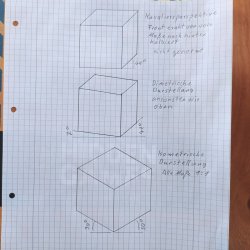 Kavalierperspektive
Front exakt vor vorn
Maße nach hinten
halbiert
nicht genormt
45°
Dimetrische
Darstellung
ansonsten wie
oben
7°
42°
Isometrische
Darstellung
Alle Maße 1:1
30°
30°